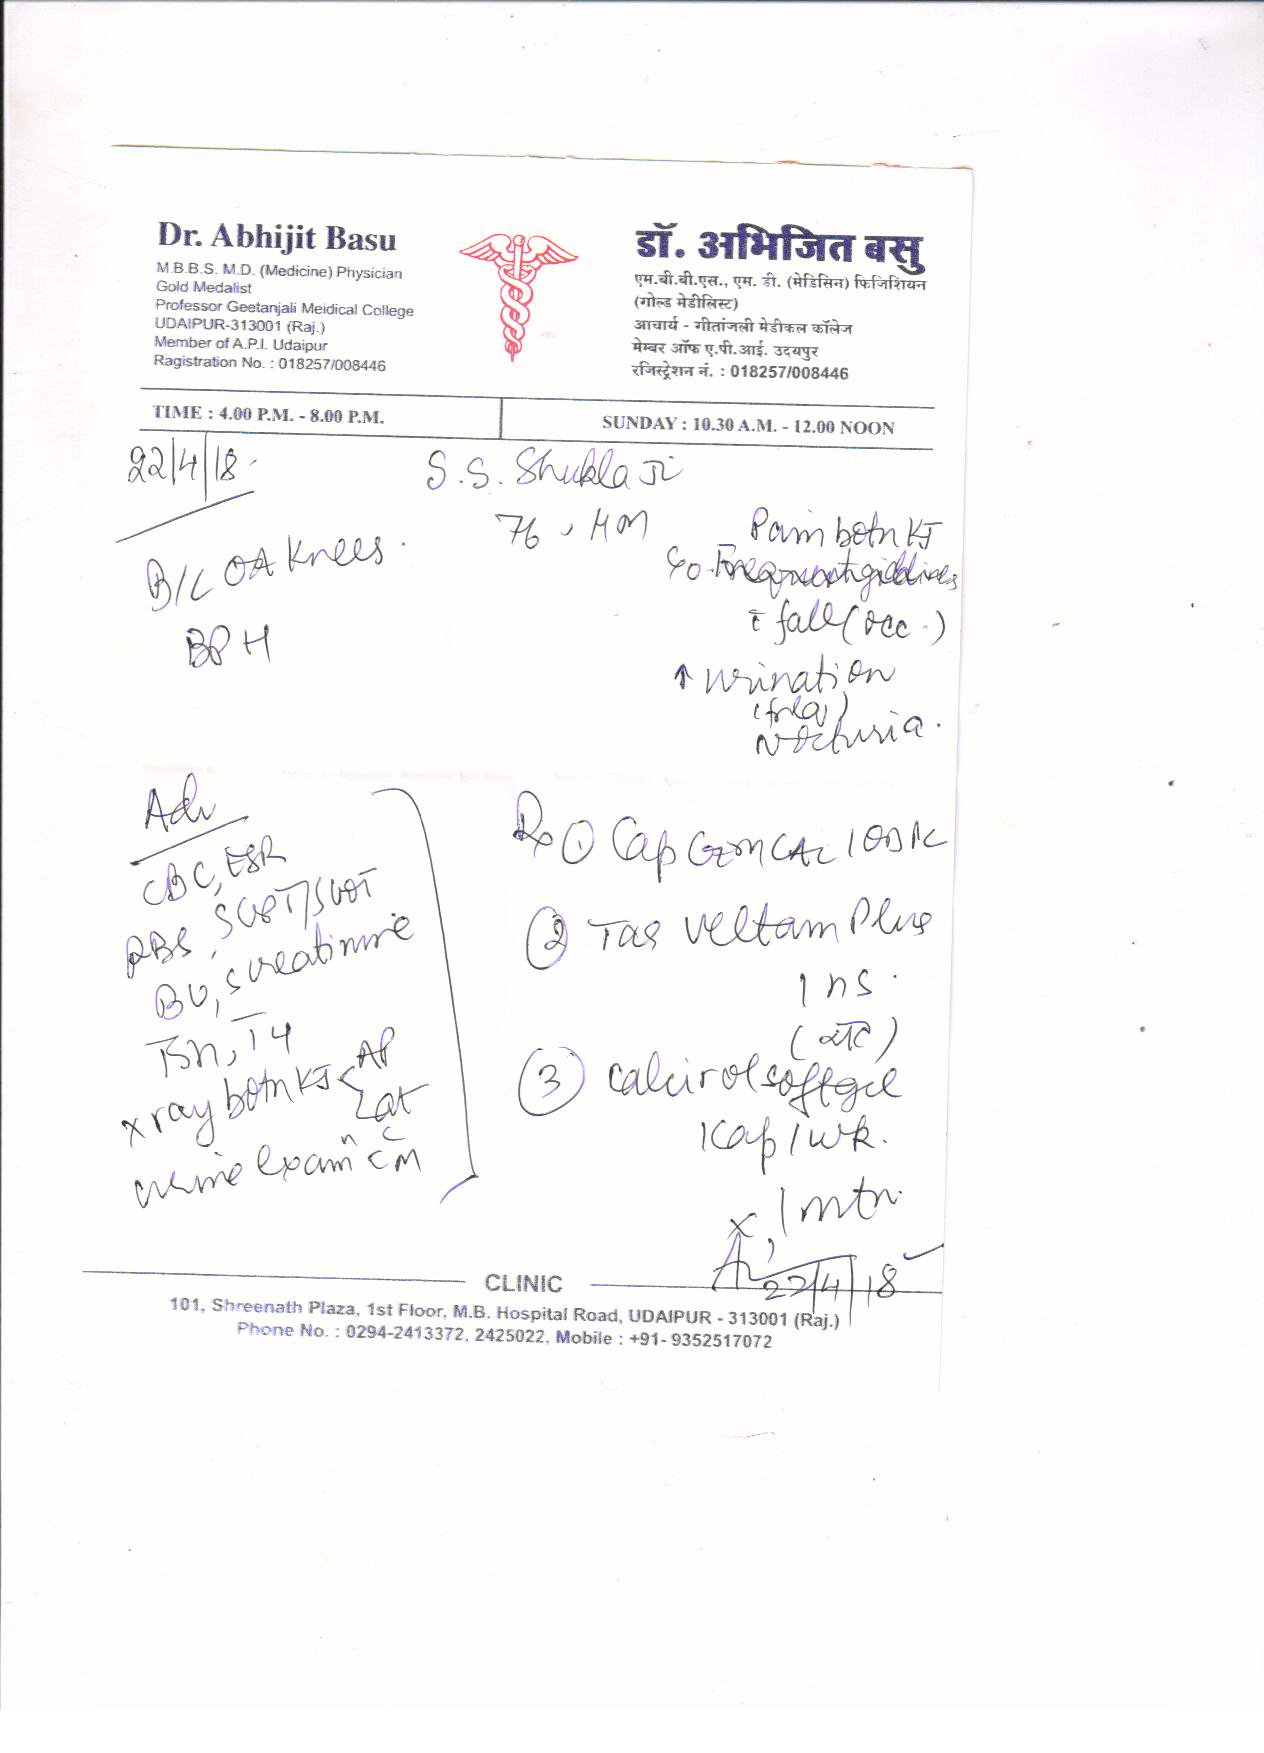 Dr. Abhijit Basu
M.B.B.S. M.D. (Medicine) Physician
Gold Medalist
Professor Geetanjali Meidical College
UDAIPUR-313001 (Raj.)
Member of A.P.I. Udaipur
Ragistration No. : 018257/008446
डॉ. अभिजित बसु
एम.बी.बी.एस., एम. डी. (मेडिसिन) फिजिशियन
(गोल्ड मेडीलिस्ट)
आचार्य - गीतांजली मेडीकल कॉलेज
मेम्बर ऑफ ए.पी.आई. उदयपुर
रजिस्ट्रेशन नं. : 018257/008446
TIME : 4.00 P.M. - 8.00 P.M.
SUNDAY : 10.30 A.M. - 12.00 NOON
22/4/18
S.S. Shukla Ji
76, HM
B/L OA Knees.
BPH
Pain both KJ
C/o Frequent giddiness
c̄ fall (occ.)
↑ urination
(freq)
Nocturia.
Adv
CBC, ESR
RBS, SGPT/SGOT
BU, S creatinine
TSH, T4
x ray both KJ < AP
Lat
urine exam n c̄ M
Rx ① Cap GEMCAL 1 OD PC
② Tab Veltam Plus
1 hs.
③ Calcirol softgel
1 cap / wk.
x 1 mth.
22/4/18
CLINIC
101, Shreenath Plaza, 1st Floor, M.B. Hospital Road, UDAIPUR - 313001 (Raj.)
Phone No. : 0294-2413372, 2425022, Mobile : +91- 9352517072